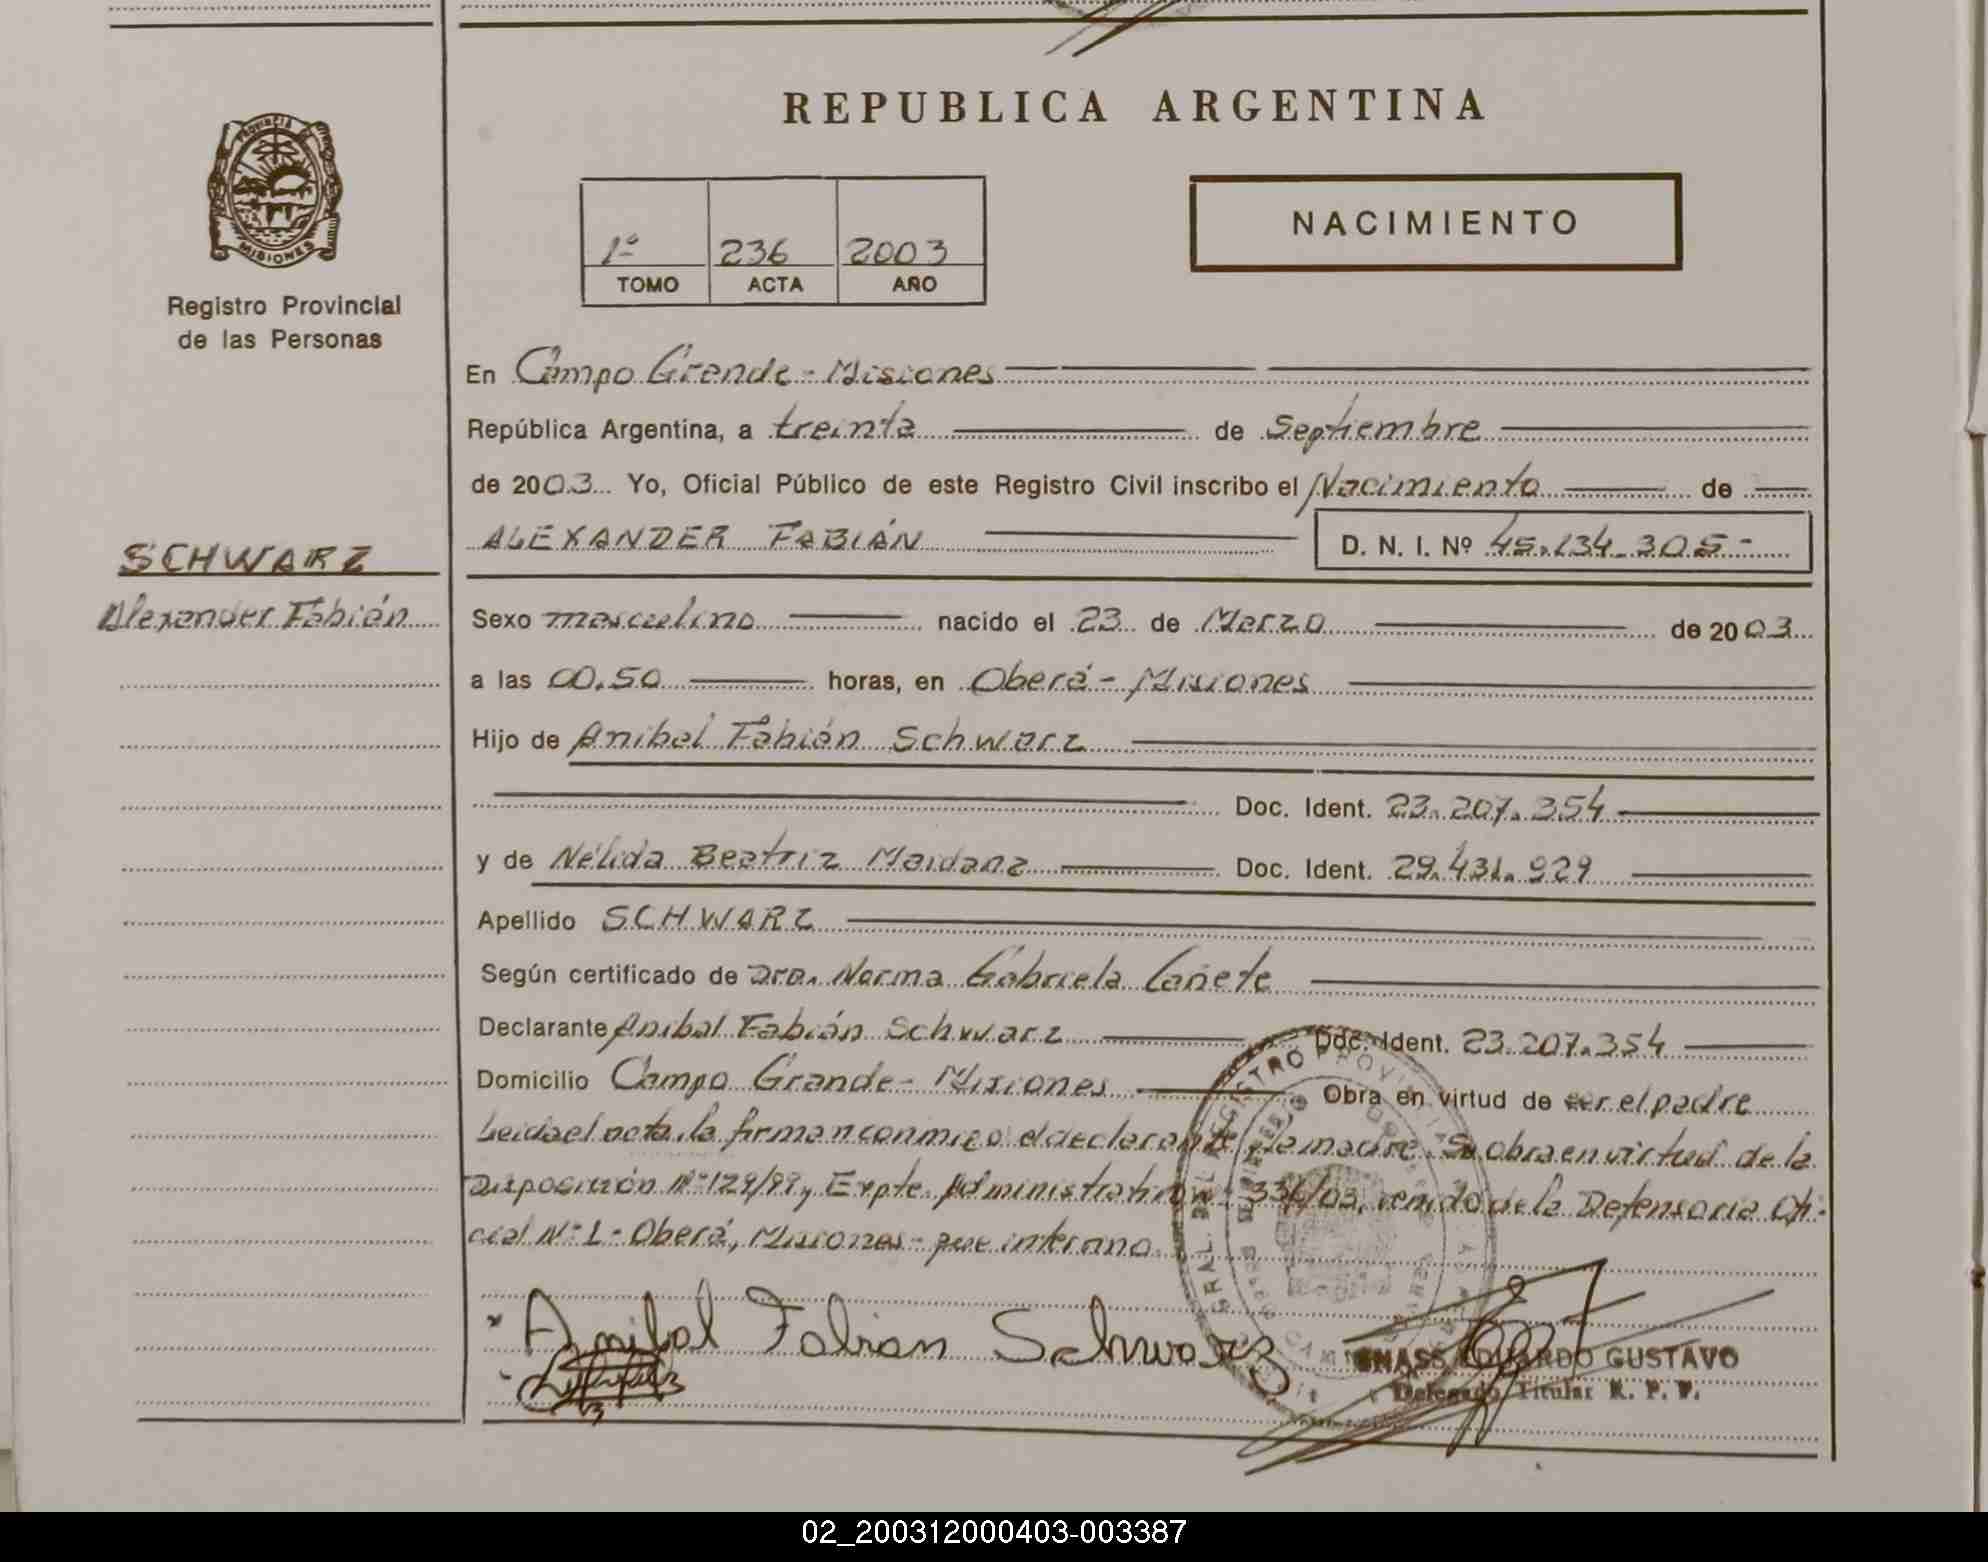 REPUBLICA ARGENTINA
PROVINCIA
MISIONES
Registro Provincial
de las Personas
1º 236 2003
TOMO ACTA AÑO
NACIMIENTO
En Campo Grande - Misiones
República Argentina, a treinta de Septiembre
de 2003 Yo, Oficial Público de este Registro Civil inscribo el Nacimiento de
ALEXANDER FABIÁN D. N. I. Nº 45.134.305-
SCHWARZ
Alexander Fabián
Sexo masculino nacido el 23 de Marzo de 2003
a las 00.50 horas, en Oberá - Misiones
Hijo de Anibal Fabián Schwarz
Doc. Ident. 23.207.354
y de Nélida Beatriz Maidana Doc. Ident. 29.431.929
Apellido SCHWARZ
Según certificado de Dra. Norma Gabriela Cañete
Declarante Anibal Fabián Schwarz Doc. Ident. 23.207.354
Domicilio Campo Grande - Misiones Obra en virtud de ser el padre
Leida el acta, la firman conmigo el declarante y la madre. Se obra en virtud de la
Disposición Nº 129/99, Expte. Administrativo 336/03, remido de la Defensoria Ofi-
cial Nº 1 - Oberá, Misiones - que interano.
Anibal Fabian Schwarz
EDUARDO GUSTAVO
Delegado Titular R. P. P.
02_200312000403-003387